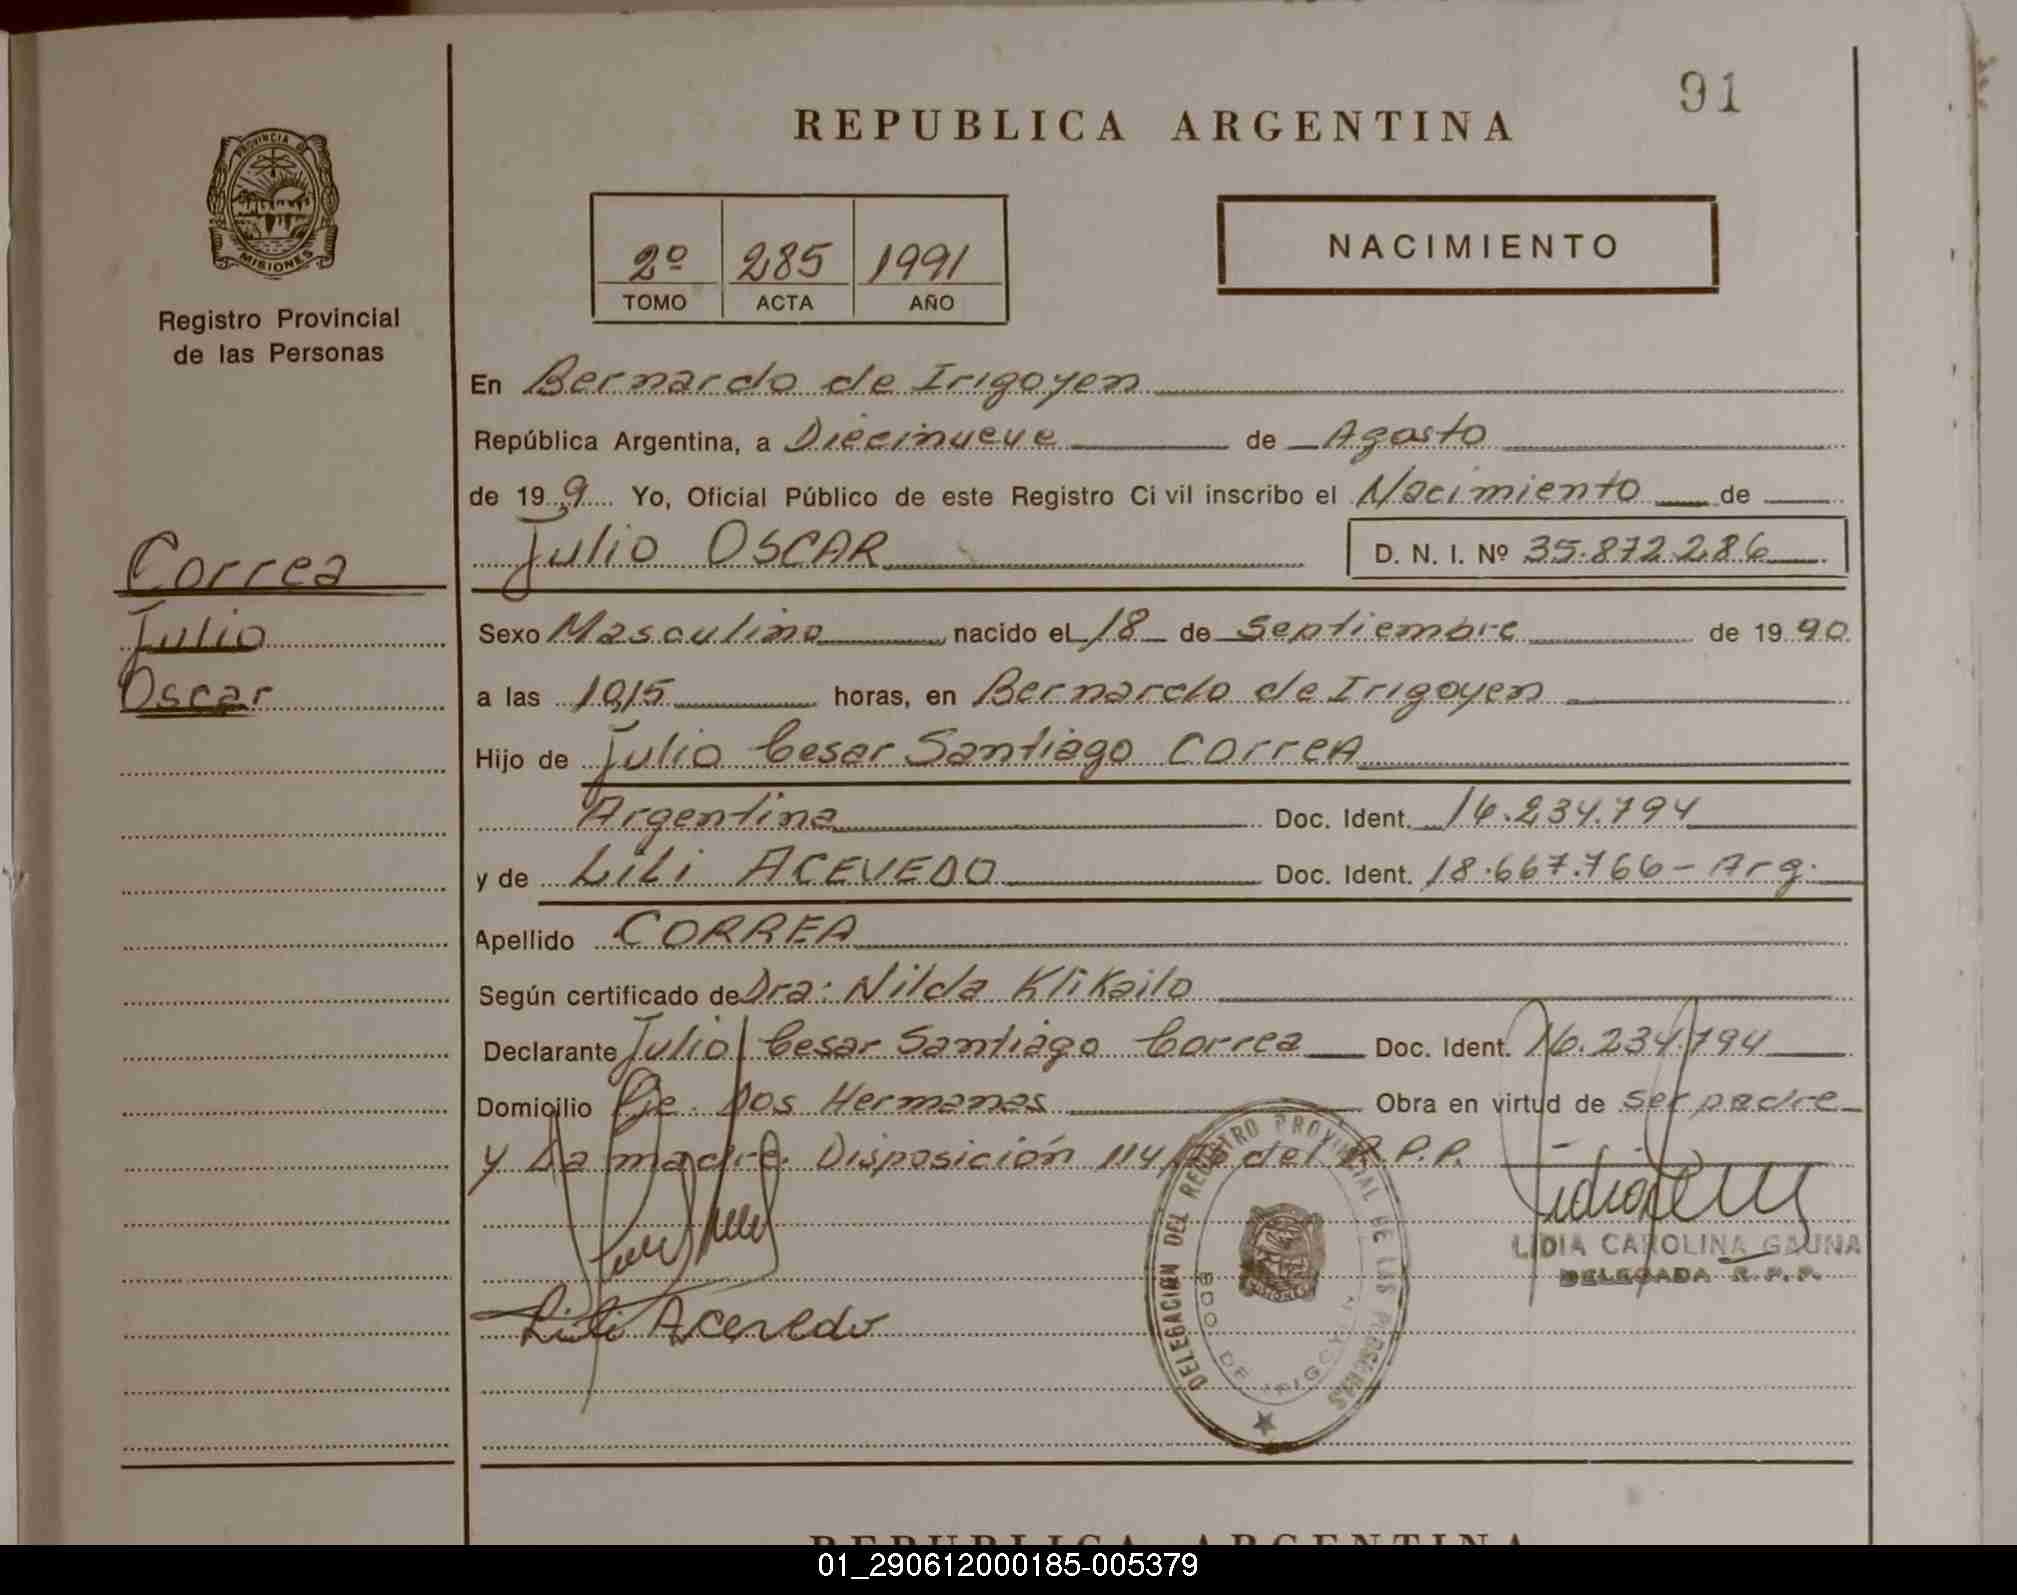 91
REPUBLICA ARGENTINA
PROVINCIA DE
MISIONES
Registro Provincial
de las Personas
2º 285 1991
TOMO ACTA AÑO
NACIMIENTO
En Bernardo de Irigoyen
República Argentina, a Diecinueve de Agosto
de 19 9 Yo, Oficial Público de este Registro Civil inscribo el Nacimiento de
Julio OSCAR D. N. I. Nº 35.872.286
Correa
Julio
Oscar
Sexo Masculino nacido el 18 de Septiembre de 19 90
a las 10,15 horas, en Bernardo de Irigoyen
Hijo de Julio Cesar Santiago CorreA
Argentina Doc. Ident. 16.234.794
y de LiLi ACEVEDO Doc. Ident. 18.667.766 - Arg.
Apellido CORREA
Según certificado de Dra: Nilda KliKailo
Declarante Julio Cesar Santiago Correa Doc. Ident. 16.234.794
Domicilio Pje. Dos Hermanas Obra en virtud de ser padre
y La madre. Disposición 114/ del R.P.P.
LIDIA CAROLINA GAUNA
DELEGADA R.P.P.
Lili Acevedo
DELEGACION DEL REGISTRO PROVINCIAL DE LAS PERSONAS
BDO DE IRIGOYEN
REPUBLICA ARGENTINA
01_290612000185-005379